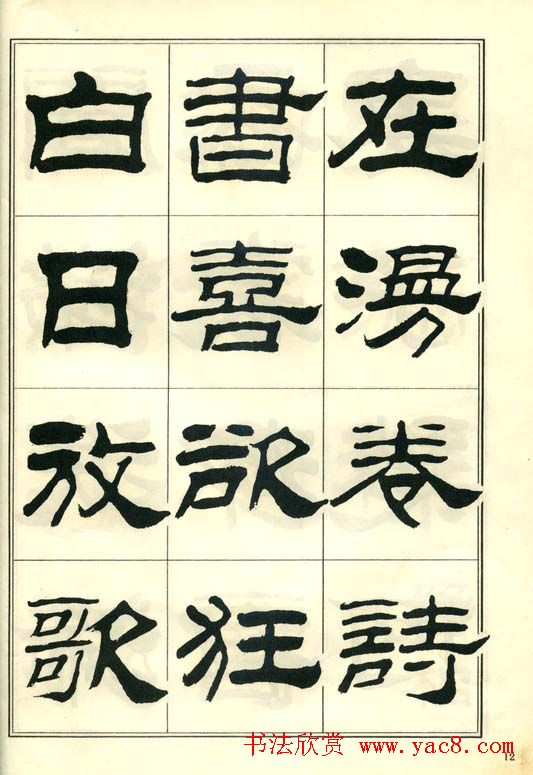 在漫卷詩
書喜欲狂
白日放歌
书法欣赏 www.yac8.com
12